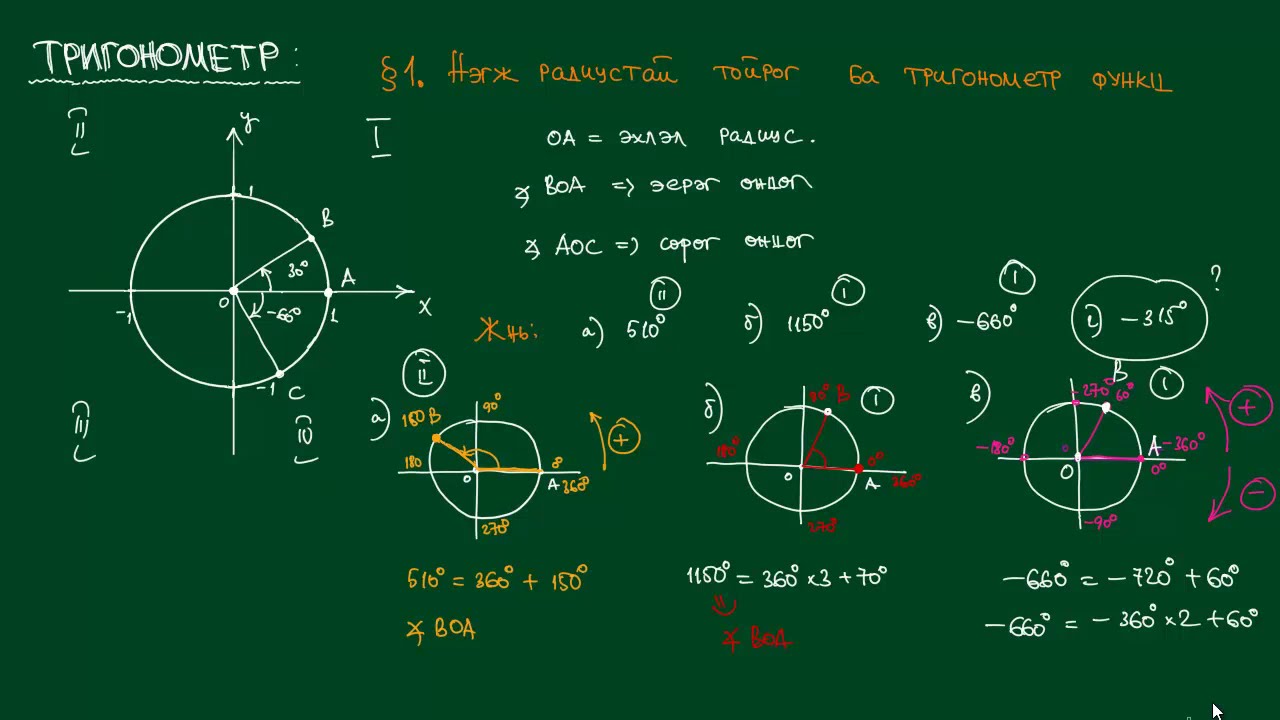 ТРИГОНОМЕТР :
§1. Нэгж радиустай тойрог ба тригонометр функц
II
I
y
1
B
30°
A
O
-60°
-1
1
x
-1
C
III
IV
OA = эхлэл радиус.
∡ BOA => эерэг өнцөг
∡ AOC => сөрөг өнцөг
Жнь:
II
а) 510°
I
б) 1150°
I
в) -660°
?
г) -315°
II
а)
150 B
90°
180
0°
0
A 360°
270°
+
б)
90° B
I
180°
0°
0
A
360°
270°
в)
-270°
B
60°
I
-180°
0
O
A
-360°
0°
-90°
+
-
510° = 360° + 150°
∡ BOA
1150° = 360° × 3 + 70°
∡ BOA
-660° = -720° + 60°
-660° = -360° × 2 + 60°